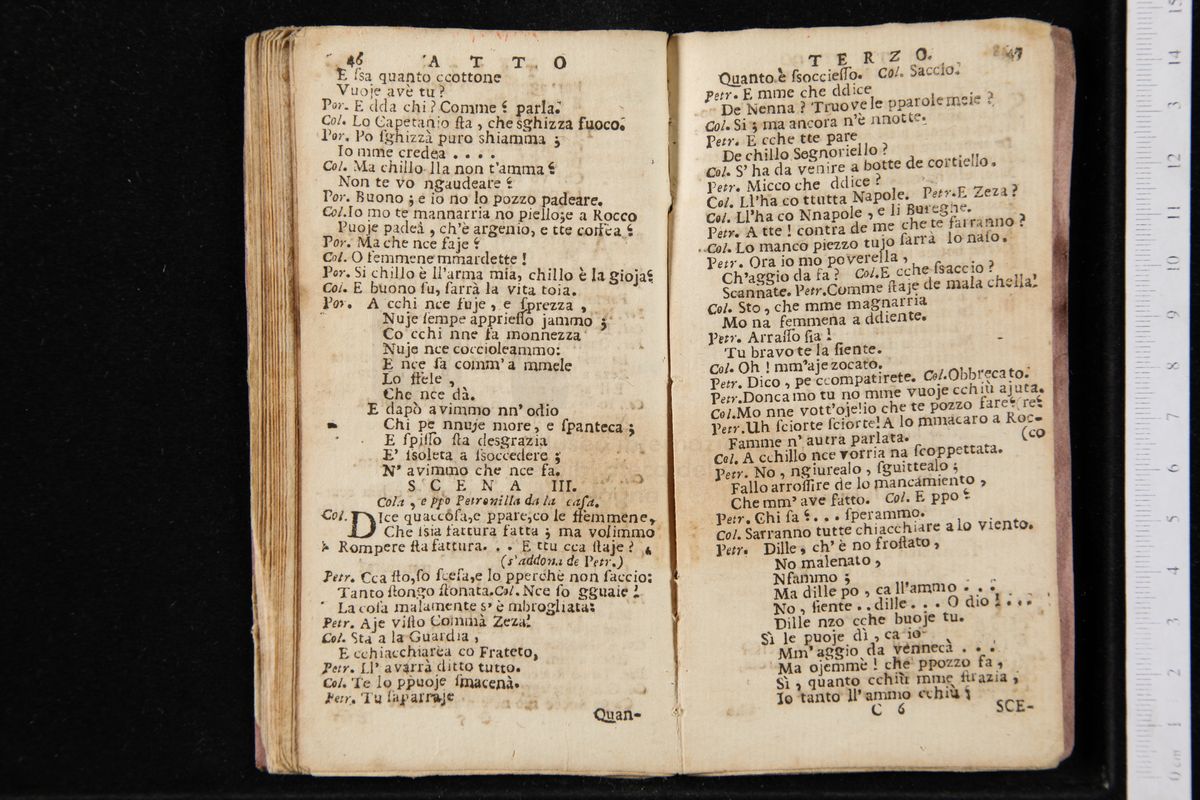 46 ATTO
E ſsa quanto ccottone
Vuoje avè tu?
Por. E dda chi? Comme? parla.
Col. Lo Capetanio ſta, che sghizza fuoco.
Por. Po ſghizzà puro shiamma;
Io mme credea . . . .
Col. Ma chillo lla non t'amma?
Non te vo ngaudeare?
Por. Buono; e io no lo pozzo padeare.
Col. Io mo te mannarria no piello;e a Rocco
Puoje padeà, ch'è argenio, e tte correa?
Por. Ma che nce faje?
Col. O femmene mmardette!
Por. Si chillo è ll'arma mia, chillo è la gioja?
Col. E buono ſu, ſarrà la vita toia.
Por. A cchi nce fuje, e ſprezza,
Nuje ſempe apprieſſo jammo;
Co cchi nne fa monnezza
Nuje nce coccioleammo:
E nce ſa comm'a mmele
Lo ffele,
Che nce dà.
E dapò avimmo nn'odio
Chi pe nnuje more, e ſpanteca;
E ſpiſſo ſta desgrazia
E' ſsoleta a ſsoccedere;
N' avimmo che nce fa.
SCENA III.
Cola, e ppo Petronilla da la caſa.
Col. DIce quaccoſa,e ppare,co le ffemmene,
Che ſsia fattura fatta; ma voſimmo
Rompere ſta fattura. . . E ttu cca ſtaje?
(s'addona de Petr.)
Petr. Cca ſto,ſo ſceſa,e lo pperchè non ſaccio:
Tanto ſtongo ſtonata. Col. Nce ſo gguaie!
La coſa malamente s'è mbrogliata:
Petr. Aje viſto Commà Zeza!
Col. Sta a la Guardia,
E cchiacchiarea co Frateto,
Petr. Ll' avarrà ditto tutto.
Col. Te lo ppuoje ſmacenà.
Petr. Tu ſaparraje
Quan-
TERZO. 47
Quanto è ſsoccieſſo. Col. Saccio.
Petr. E mme che ddice
De Nenna? Truove le pparole meie?
Col. Si; ma ancora n'è nnotte.
Petr. E cche tte pare
De chillo Segnoriello?
Col. S' ha da venire a botte de cortiello.
Petr. Micco che ddice?
Col. Ll'ha co ttutta Napole. Petr. E Zeza?
Col. Ll'ha co Nnapole, e li Bureghe.
Petr. A tte! contra de me che te farranno?
Col. Lo manco piezzo tujo ſarrà lo naſo.
Petr. Ora io mo poverella,
Ch'aggio da fa? Col. E cche ſsaccio?
Scannate. Petr. Comme ſtaje de mala chella!
Col. Sto, che mme magnarria
Mo na femmena a ddiente.
Petr. Arraſſo ſia!
Tu bravo te la ſiente.
Col. Oh! mm'aje zocato.
Petr. Dico, pe ccompatirete. Col. Obbrecato.
Petr. Donca mo tu no mme vuoje cchiù ajuta.
Col. Mo nne vott'oje!io che te pozzo fare? (re?
Petr. Uh ſciorte ſciorte! A lo mmacaro a Roc-
Famme n' autra parlata. (co
Col. A cchillo nce vorria na ſcoppettata.
Petr. No, ngiurealo, ſguittealo;
Fallo arroſſire de lo mancamiento,
Che mm' ave fatto. Col. E ppo?
Petr. Chi ſa?. . . ſperammo.
Col. Sarranno tutte chiacchiare a lo viento.
Petr. Dille, ch' è no froſtato,
No malenato,
Nfammo;
Ma dille po, ca ll'ammo . . .
No, ſiente . . dille . . . O dio! . . .
Dille nzo cche buoje tu.
Sì le puoje dì, ca io
Mm' aggio da vennecà . . .
Ma ojemmè! che ppozzo fa,
Sì, quanto cchiù mme ſtrazia,
Io tanto ll'ammo cchiù;
C 6 SCE-